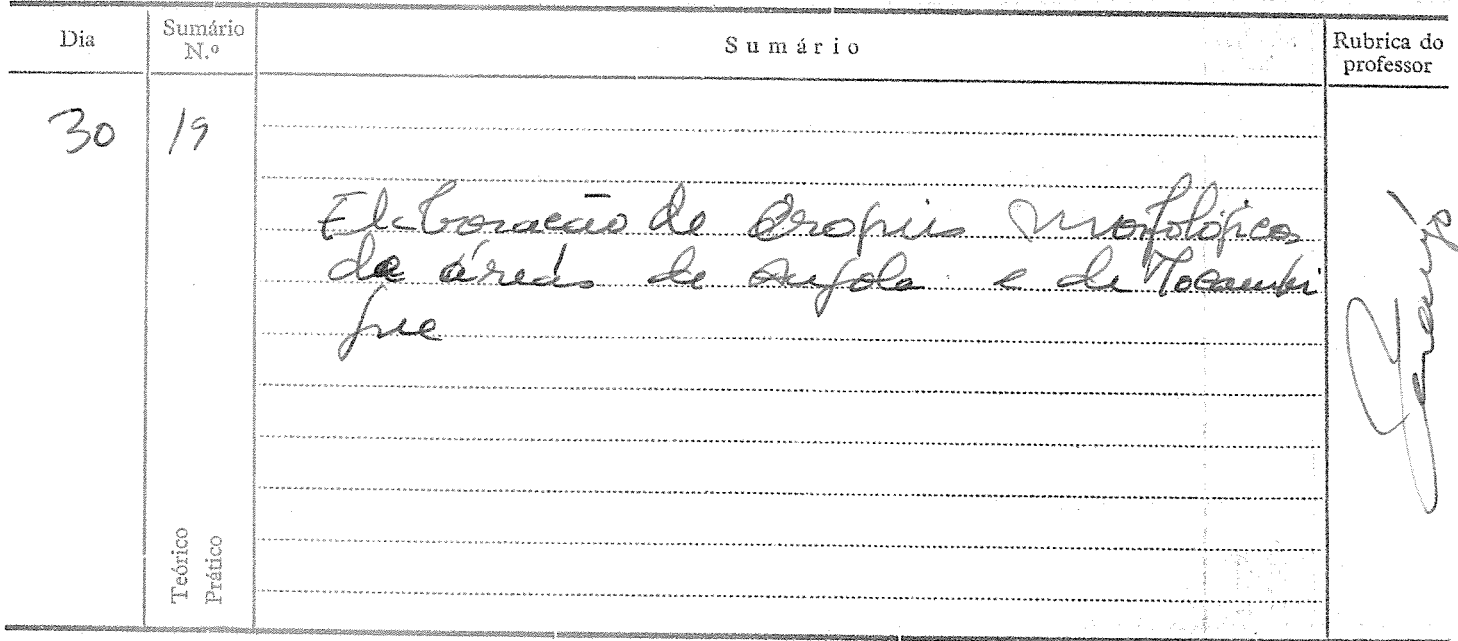 Dia
Sumário N.º
Sumário
Rubrica do professor
30
19
Elaboração de croquis morfológicos
de áreas de Angola e de Moçambi
que
Teórico
Prático